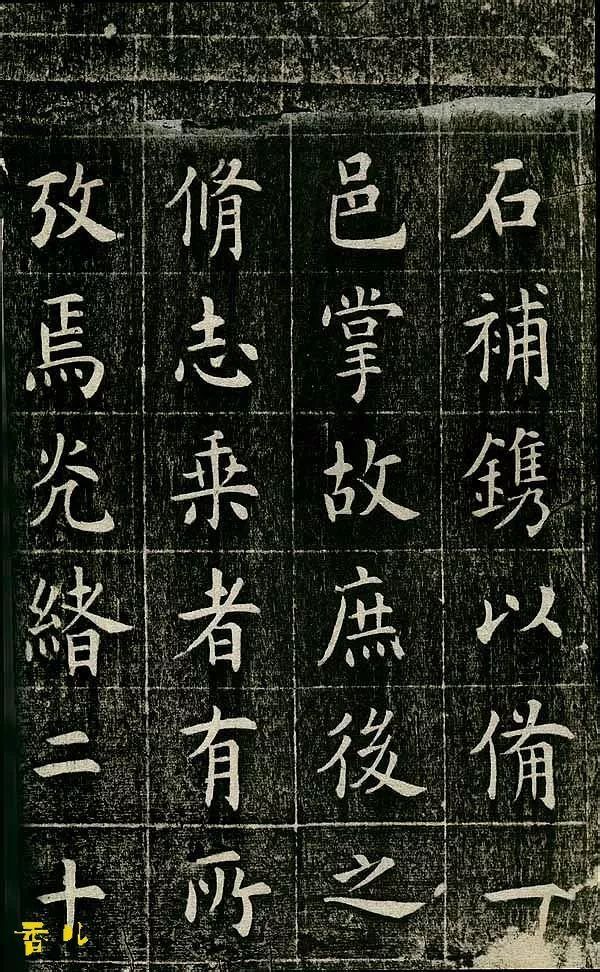 石補鐫以備一
邑掌故庶後之
脩志乗者有所
攷焉光緒二十
香儿